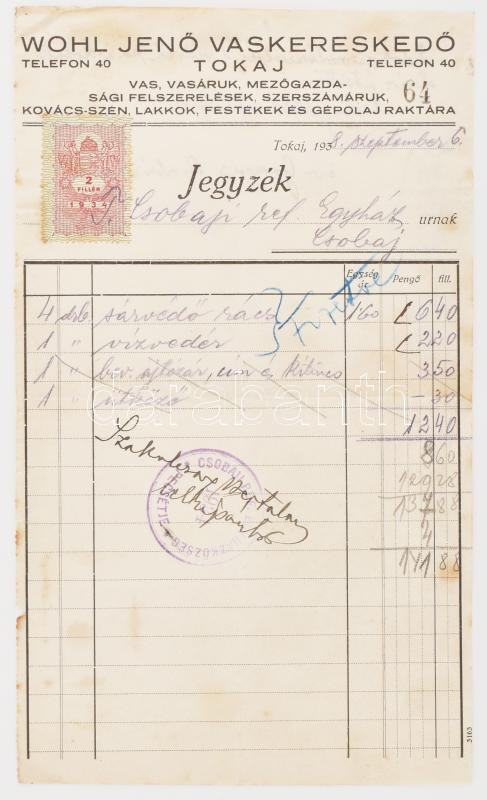 WOHL JENŐ VASKERESKEDŐ
TELEFON 40 TOKAJ TELEFON 40
VAS, VASÁRUK, MEZŐGAZDA-
SÁGI FELSZERELÉSEK, SZERSZÁMÁRUK, 64
KOVÁCS-SZÉN, LAKKOK, FESTÉKEK ÉS GÉPOLAJ RAKTÁRA
Tokaj, 1938. szeptember 6.
2
FILLÉR
1934
Jegyzék
T. Csobaji ref. Egyház urnak
Csobaj
Egység ár Pengő fill.
Fizetve
4 drb. sárvédő rács 1.60 6 40
1 " vízvedér 2 20
1 " bev. ajtózár, cím és kilincs 3 50
1 " ütköző – 30
12 40
8 60
137 88
4
141 88
Szakolczai Bertalan
CSOBAJI
EGYHÁZKÖZSÉG
darabanth
3163